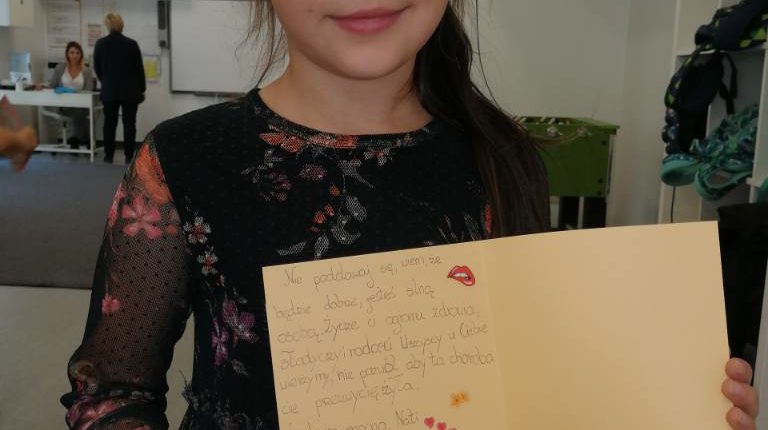 Nie poddawaj się, wiem, że
będzie dobrze, jesteś silną
osobą. Życzę ci ogromu zdrowia,
słodyczy i radości. Wszyscy w Ciebie
wierzymy, nie pozwól aby ta choroba
cię przezwyciężyła.
mocno Nati